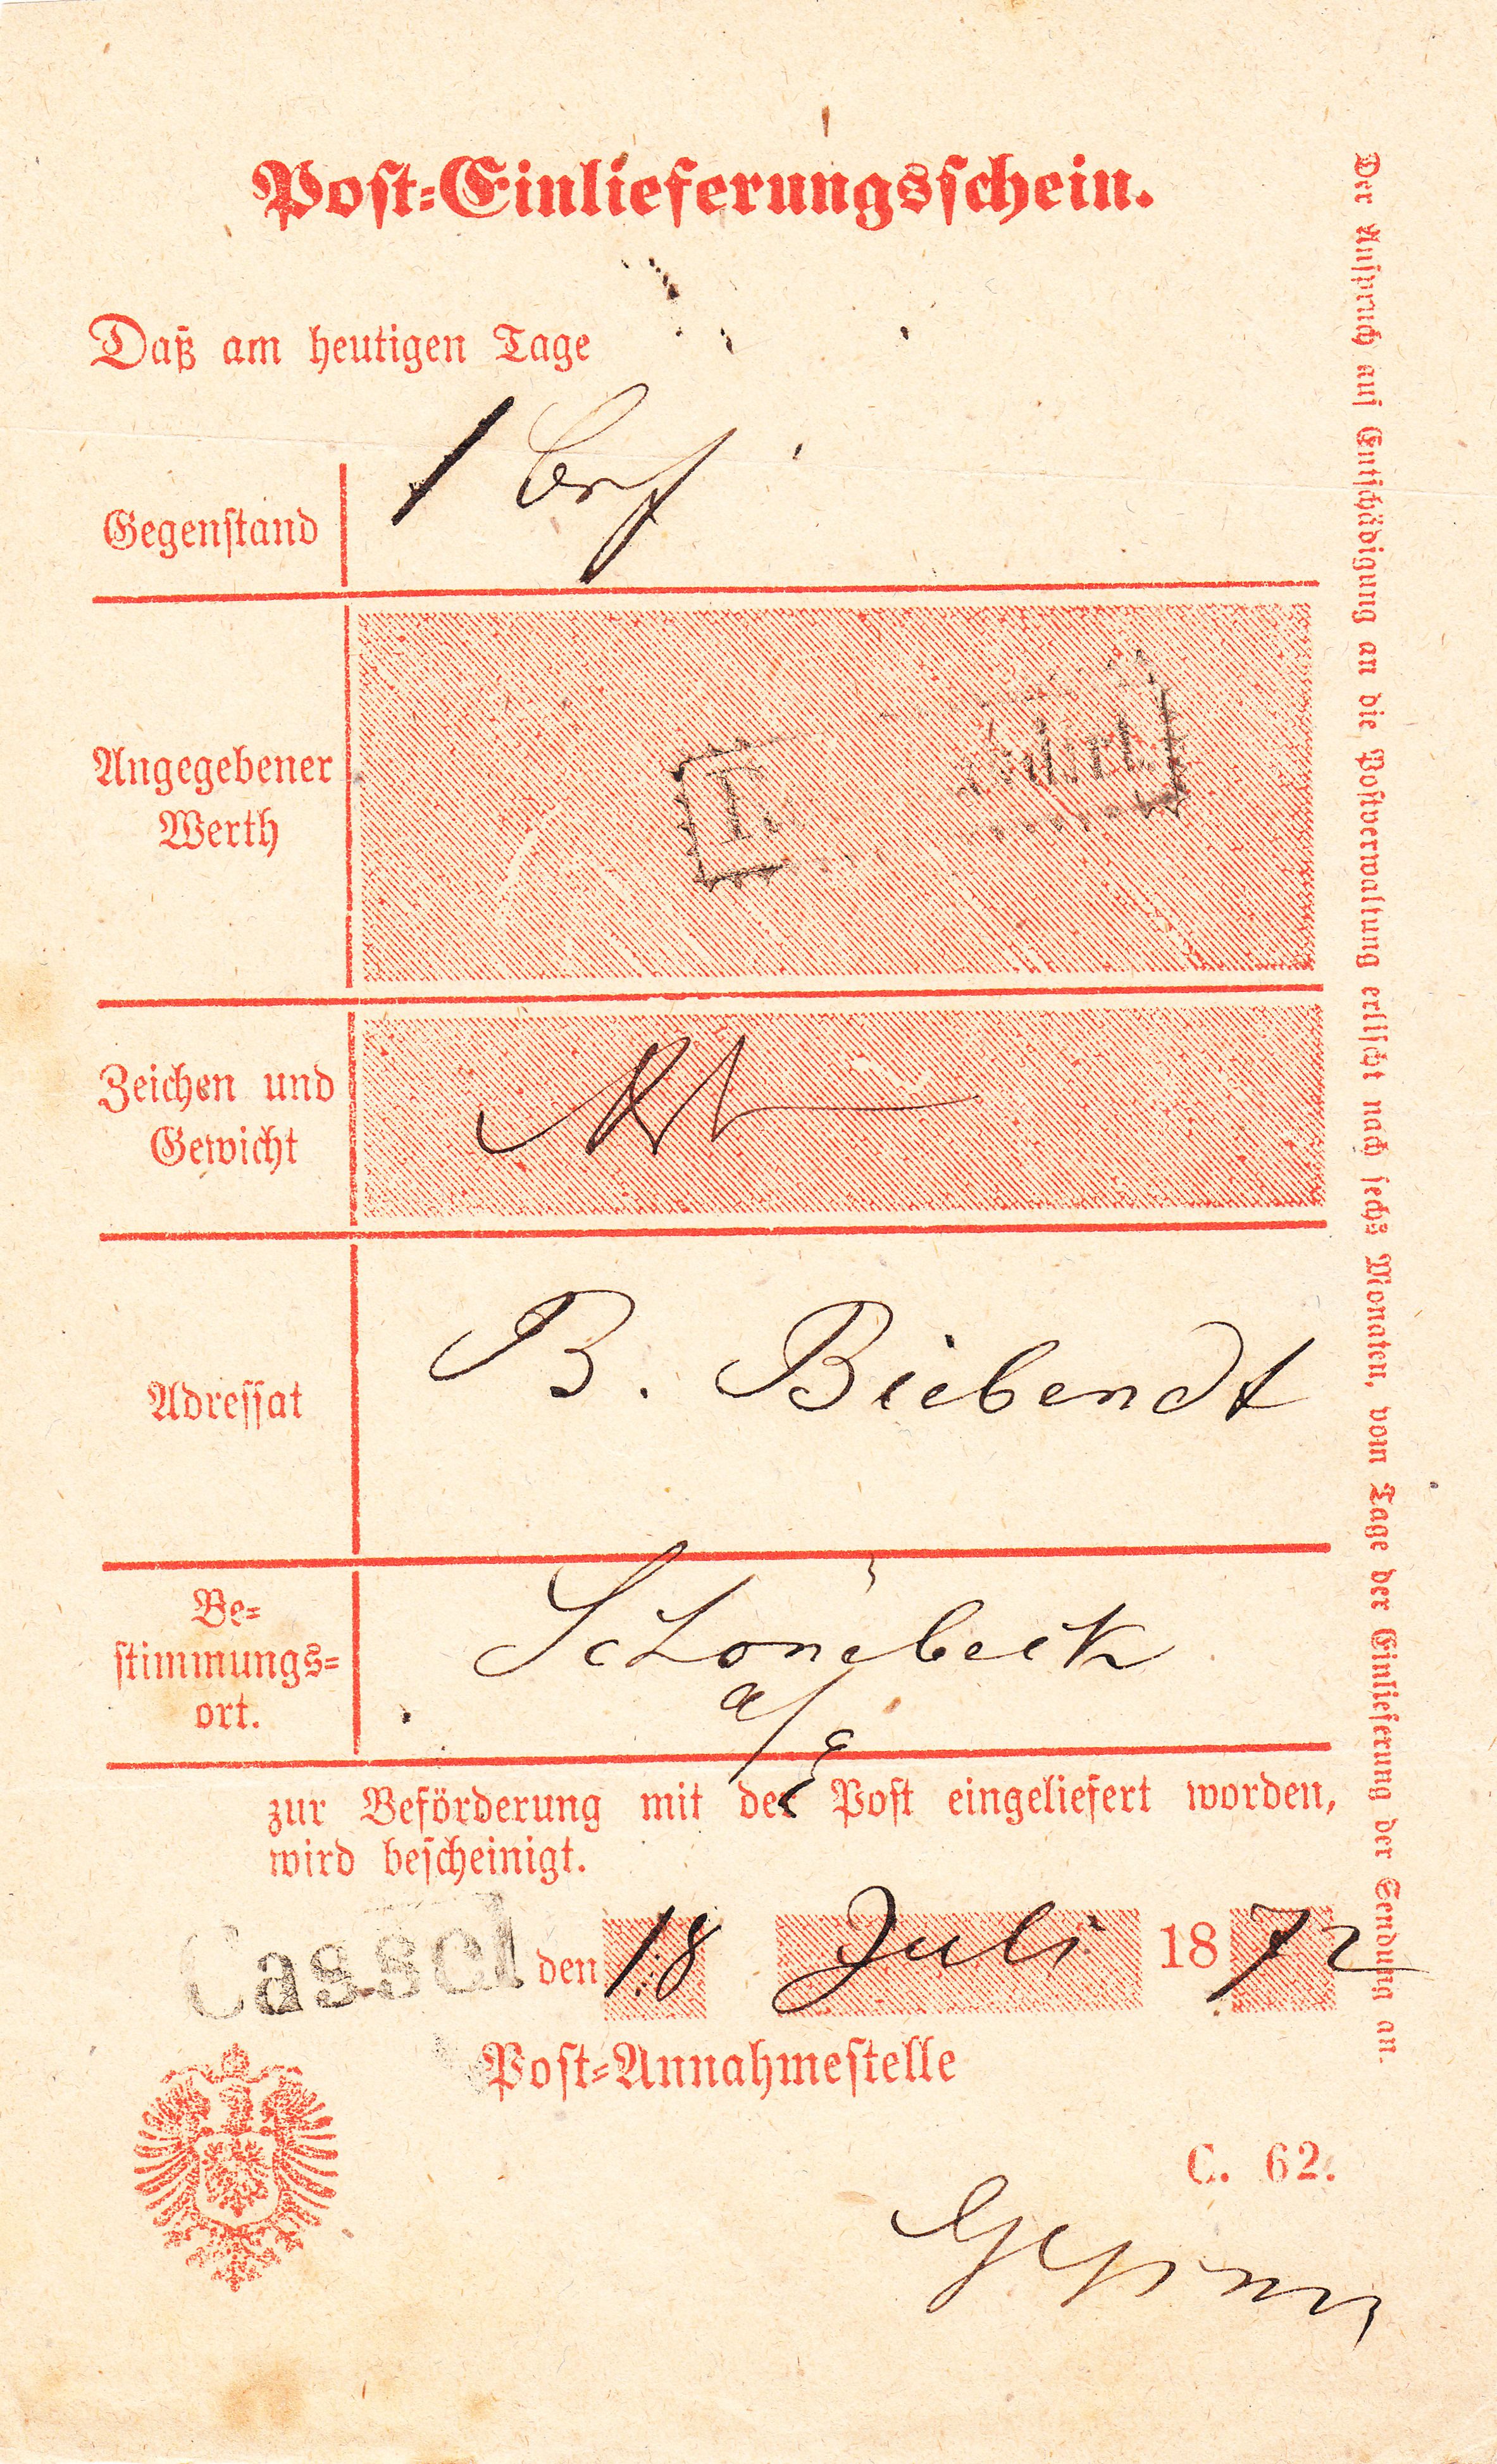 Post-Einlieferungsschein.
Daß am heutigen Tage
Gegenstand 1 Brf
Angegebener
Werth
Zeichen und
Gewicht
Adressat B. Biebendt
Be-
stimmungs-
ort.
Schönebeck
a/e
zur Beförderung mit der Post eingeliefert worden,
wird bescheinigt.
Cassel den 18 Juli 1872
Post-Annahmestelle
C. 62.
Der Anspruch auf Entschädigung an die Postverwaltung erlischt nach sechs Monaten, vom Tage der Einlieferung der Sendung an.